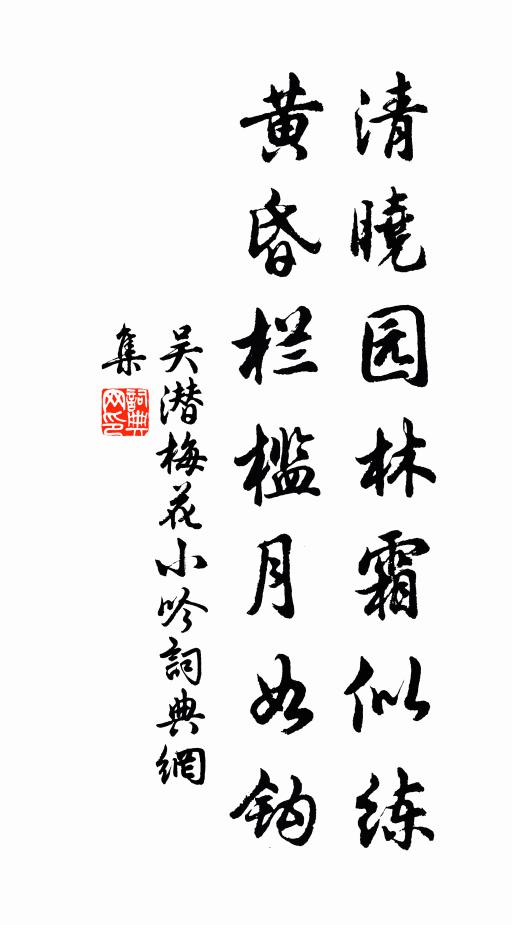 清曉园林霜似练
黄昏栏槛月如钩
吴潜梅花小吟詞典網
集
詞典网印